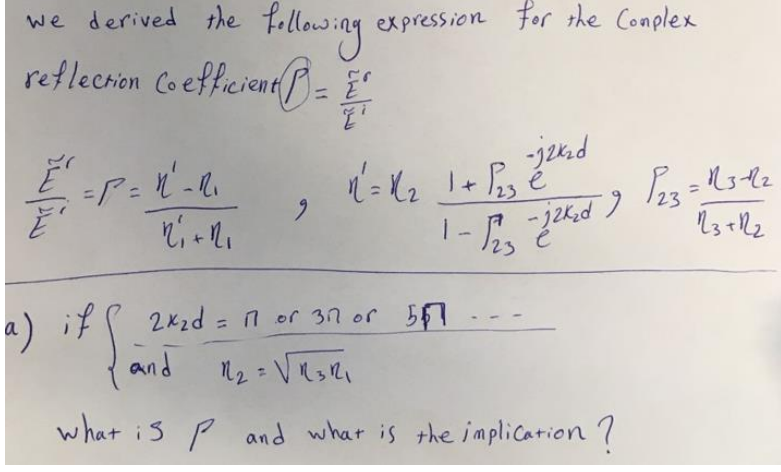 we derived the following expression for the Complex
reflection Coefficient Γ = Ẽʳ/Ẽⁱ
Ẽʳ/Ẽⁱ = Γ = (η' - η₁)/(η'₁ + η₁) , η' = η₂ (1 + Γ₂₃ e^(-j2k₂d))/(1 - Γ₂₃ e^(-j2k₂d)) , Γ₂₃ = (η₃ - η₂)/(η₃ + η₂)
a) if { 2k₂d = π or 3π or 5π ---
and η₂ = √(η₃η₁)
what is Γ and what is the implication?